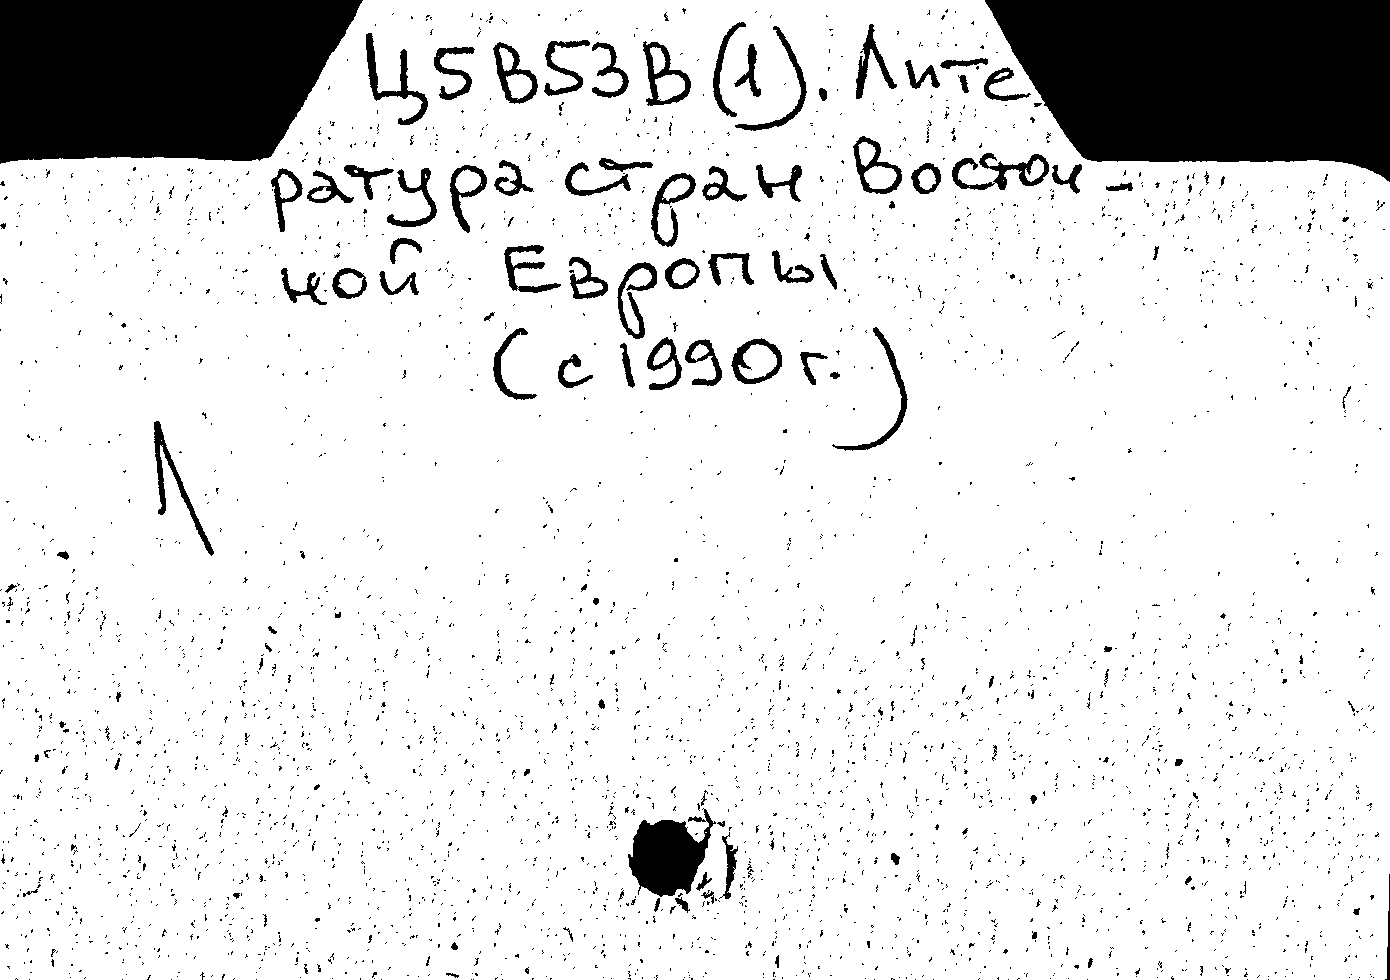 Ц5В53В(1). Лите
ратура стран Восточ-
ной Европы
(с 1990 г.)